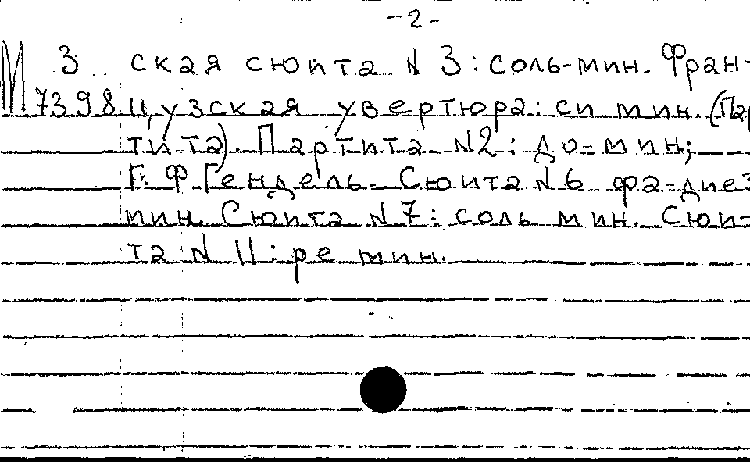 -2-
М 3 ская сюита N 3: соль-мин. Фран-
7398 цузская увертюра: си мин. (Пар
тита). Партита N2: до-мин;
Г. Ф Гендель. Сюита N 6 фа-диез
мин. Сюита N 7: соль мин. Сюи-
та N 11: ре мин.